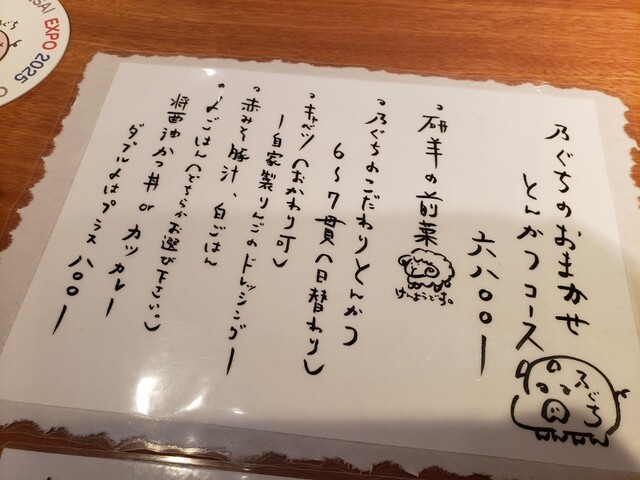 乃ぐちのおまかせ
とんかつコース
六八〇〇ー
乃ぐち
・研羊の前菜
けんようです。
・乃ぐちのこだわりとんかつ
6〜7貫(日替わり)
・キャベツ(おかわり可)
ー自家製りんごのドレッシングー
・赤みそ豚汁、白ごはん
・〆ごはん(どちらかお選び下さい。)
将西油かつ丼 or カツカレー
ダブル〆はプラス八〇〇ー
SAI EXPO 2025
ぐち